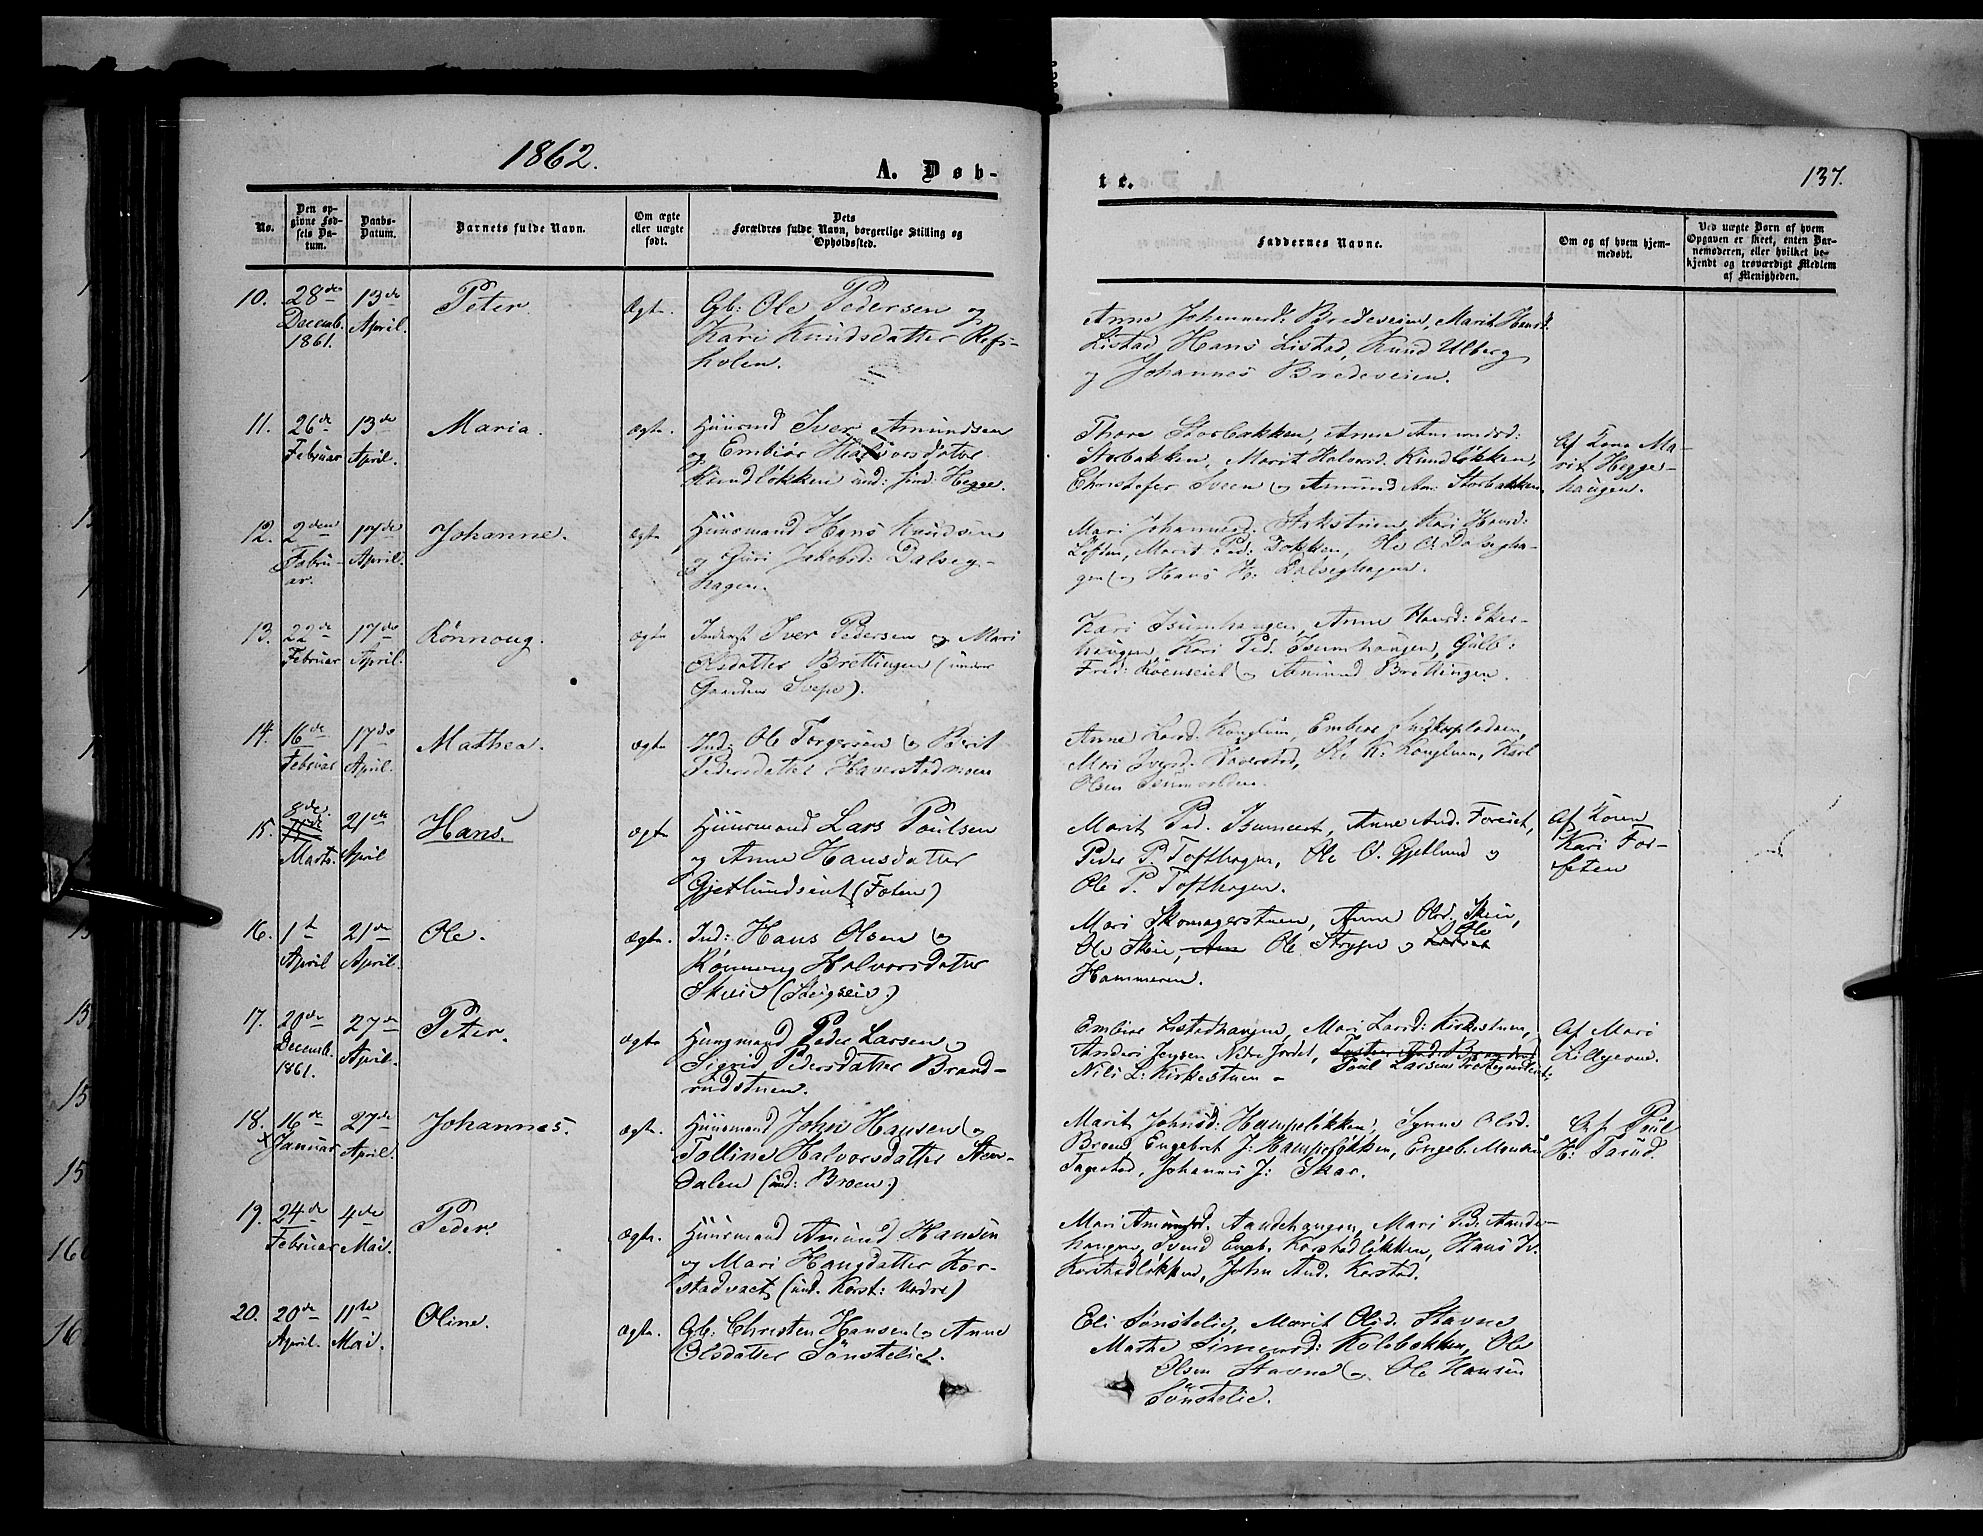 1862.
A. Døb-
te.
137.
No.
Den op-
givne Fød-
sels Da-
tum.
Daabs-
Datum.
Barnets fulde Navn.
Om ægte
eller uægte
født.
Dets
Forældres fulde Navn, borgerlige Stilling og
Opholdssted.
Faddernes Navne.
Om og af hvem hjem-
medøbt.
Ved uægte Børn af hvem
Opgaven er skeet, enten Bar-
nemoderen, eller hvilket be-
kjendt og troværdigt Medlem
af Menigheden.
10.
28de
Decemb.
1861.
13de
April.
Peter.
Ægte.
Gb: Ole Pedersen og
Kari Knudsdatter Refs-
holen.
Anne Johannesd: Bredeveien, Marit Hansd.
Listad, Hans Listad, Knud Ulberg
og Johannes Bredeveien.
11.
26de
Februar
13de
April.
Maria.
ægte.
Huusmd Iver Amundsen
og Embiør Halvorsdatter
Kundløkken und: Hegge.
Thore Storbækken, Anne Amundsd:
Storbakken, Marit Halvorsd. Kundløkken,
Christofer Sveen og Amund Am: Storbakken.
Af Kone Ma-
rit Hegge-
haugen.
12.
2den
Febru-
ar.
17de
April.
Johanne.
ægte
Huusmand Hans Knudsen
og Guri Jakobsd: Dalseg-
hagen.
Mari Johannesd. Kari Hansd:
Loften, Marit Ped: Bakken, Ole O. Dalsegha-
gen og Hans K: Dalseghagen.
13.
22de
Februar
17de
April.
Rönnoug.
ægte
Inderst Iver Pedersen og Mari
Olsdatter Brettingen (under
Gaarden Svepe).
Kari Isumhaugen, Anne Hansd: Eker-
haugen, Kari Ped. Isumhaugen, Gulb:
Fred: og Amund Brettingen.
14.
16de
Februar
17de
April.
Mathea.
ægte
Ind: Ole Torgersen og Berit
Pedersdatter Haverstadmoen
Anne Larsd. Konglum, Embiør
Mari Iversd. Haverstad, Ole K: Konglum, Karl
Olsen
15.
8de
Marts.
21de
April
Hans.
ægte
Huusmand Lars Poulsen
og Anne Hansdatter
Gjetlundseiet (Folen)
Marit Ped. Anne And. Foreiet,
Peder P. Tofthagen, Ole O. Gjetlund og
Ole P. Tofthagen.
Af Konen
Kari For-
seten
16.
1ste
April
21de
April.
Ole.
ægte.
Ind: Hans Olsen og
Rönnoug Halvorsdatter
Skeie
Mari Skomagerstuen, Anne Olsd. Skeie,
Ole Skeie, Ole Stryge og Ole
Hammeren.
17.
20de
Decemb.
1861.
27de
April.
Peter.
ægte
Huusmand Peder Larsen og
Sigrid Pedersdatter Brand-
rudstuen.
Embiør Listadhaugen, Mari Larsd: Kirkestuen,
Anders Jensen Nedre Jordet,
Nils L: Kirkestuen - Poul Larsen
Af Mari
Lillegerne.
18.
16de
Januar
27de
April.
Johannes.
ægte.
Huusmand John Hansen og
Tolline Halvorsdatter Steen-
dalen (und: Broen.)
Marit Johnsd: Hampeløkken, Synne Olsd.
Broend Engebret J: Hampeløkken, Engeb.
Tagestad, Johannes J: Skar.
Af Poul
H: Tarud.
19.
24de
Februar
4de
Mai.
Peder.
ægte.
Huusmand Amund Hansen
og Mari Hansdatter Kor-
stadvaet (und. Korst: Nedre)
Mari Amundsd. Aandehaugen, Mari Ped: Aande-
haugen, Svend Engeb. Korstadløkken, Hans Iv.
Korstadløkken, John And. Korstad.
20.
20de
April.
11te
Mai.
Oline.
Ægte.
Gb. Christen Hansen og Anne
Olsdatter Sönstelie.
Eli Sönstelie, Marit Olsd. Stavne
Marte Simensd: Kolobakken, Ole
Olsen Stavne og Ole Hansen
Sönstelie.